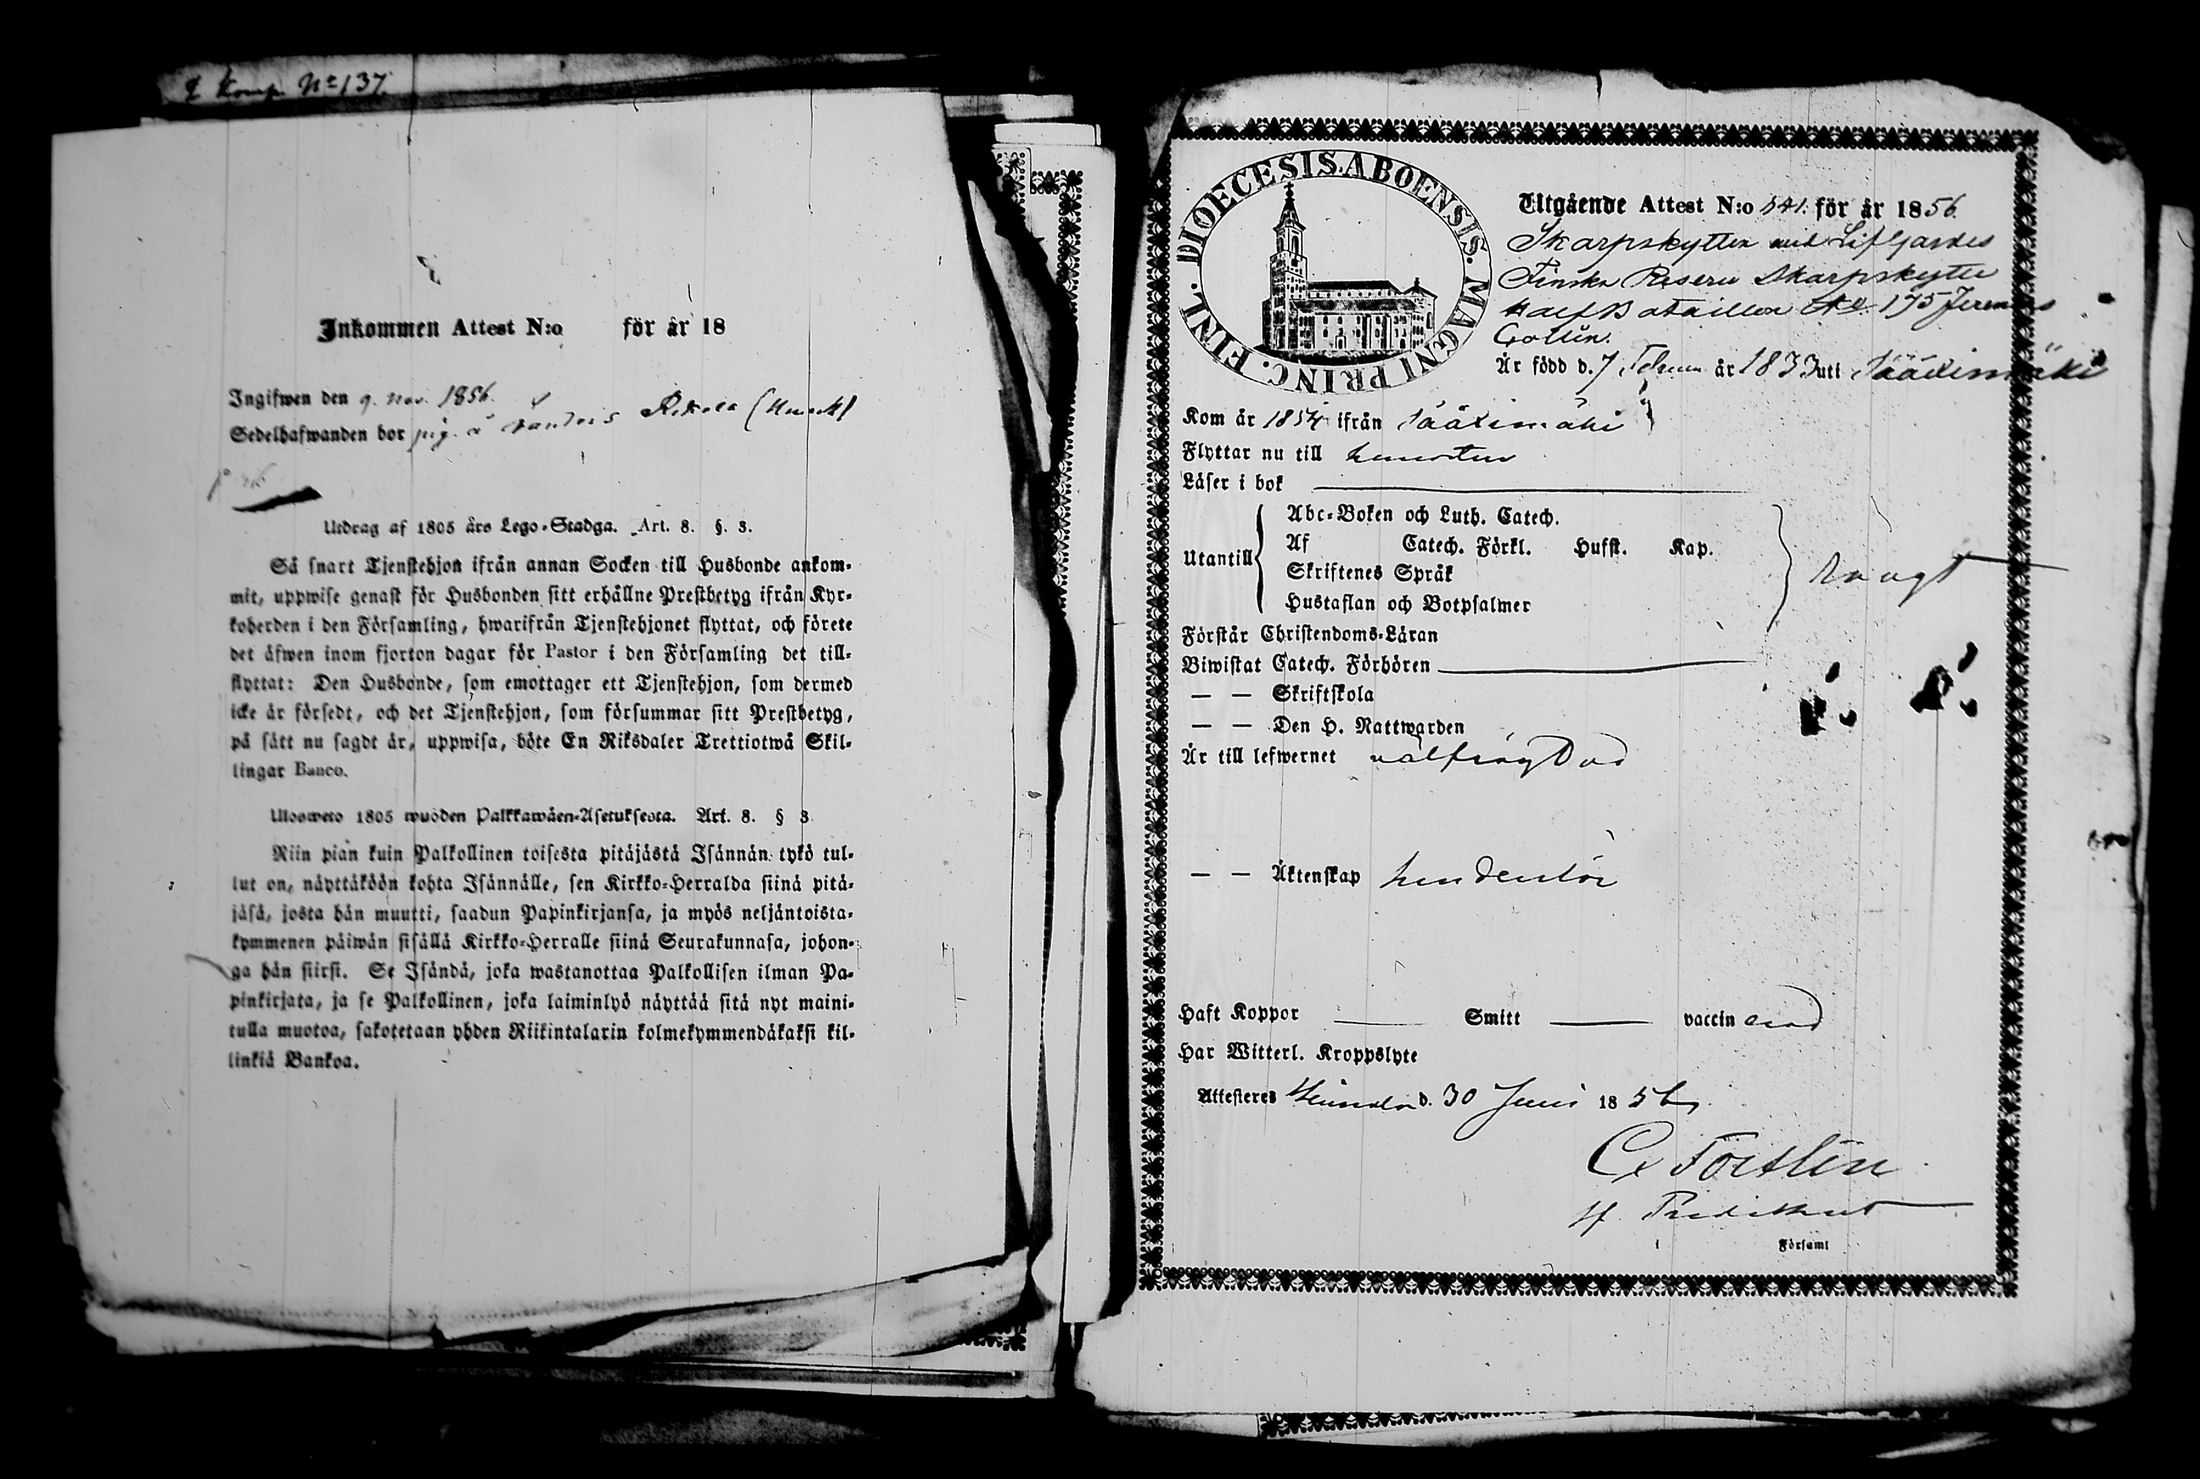 Komp. No 137.
Inkommen Attest N:o för år 18
Ingifwen den 9. nov. 1856.
Sedelhafwanden bor
Utdrag af 1805 års Lego-Stadga. Art. 8. §. 3.
Så snart Tjenstehjon ifrån annan Socken till Husbonde ankom-
mit, uppwise genast för Husbonden sitt erhållne Prestbetyg ifrån Kyr-
koherden i den Församling, hwarifrån Tjenstehjonet flyttat, och förete
det äfwen inom fjorton dagar för Pastor i den Församling det till-
flyttat: Den Husbonde, som emottager ett Tjenstehjon, som dermed
icke är försedt, och det Tjenstehjon, som försummar sitt Prestbetyg,
på sätt nu sagdt är, uppwisa, böte En Riksdaler Trettiotwå Skil-
lingar Banco.
Ulosweto 1805 wuoden Palkkawäen-Asetuksesta. Art. 8. § 3
Niin pian kuin Palkollinen toisesta pitäjästä Isännän tykö tul-
lut on, näyttäköön kohta Isännälle, sen Kirkko-Herralda siinä pitä-
jäsä, josta hän muutti, saadun Papinkirjansa, ja myös neljäntoista-
kymmenen päiwän sisällä Kirkko-Herralle siinä Seurakunnasa, johon-
ga hän siirsi. Se Isändä, joka wastanottaa Palkollisen ilman Pa-
pinkirjata, ja se Palkollinen, joka laiminlyö näyttää sitä nyt maini-
tulla muotoa, sakotetaan yhden Riikintalarin kolmekymmendäkaksi kil-
linkiä Bankoa.
DIOECESIS. ABOENSIS. MAGNI PRINC. FINL.
Utgående Attest N:o 541. för år 1856.
Skarpskytten vid Lifgardes
Finska Reserv Skarpskytte
Half Bataillon No 175 Jeremias
Är född d. 7 Februa år 1833 uti Sääxmäki
Kom år 1854 ifrån Sääxmäki
Flyttar nu till hemorten
Läser i bok
Utantill
Abc-Boken och Luth. Catech.
Af Catech. Förkl. Hufst. Kap.
Skriftenes Språk
Hustaflan och Botpsalmer
Förstår Christendoms-Läran
Biwistat Catech. Förhören
— — Skriftskola
— — Den H. Nattwarden
Är till lefwernet välfrägdad
— — Äktenskap hinderlös
Haft Koppor Smitt vaccinerad
Har Witterl. Kroppslyte
Attesteres d. 30 Juni 1856
Församl